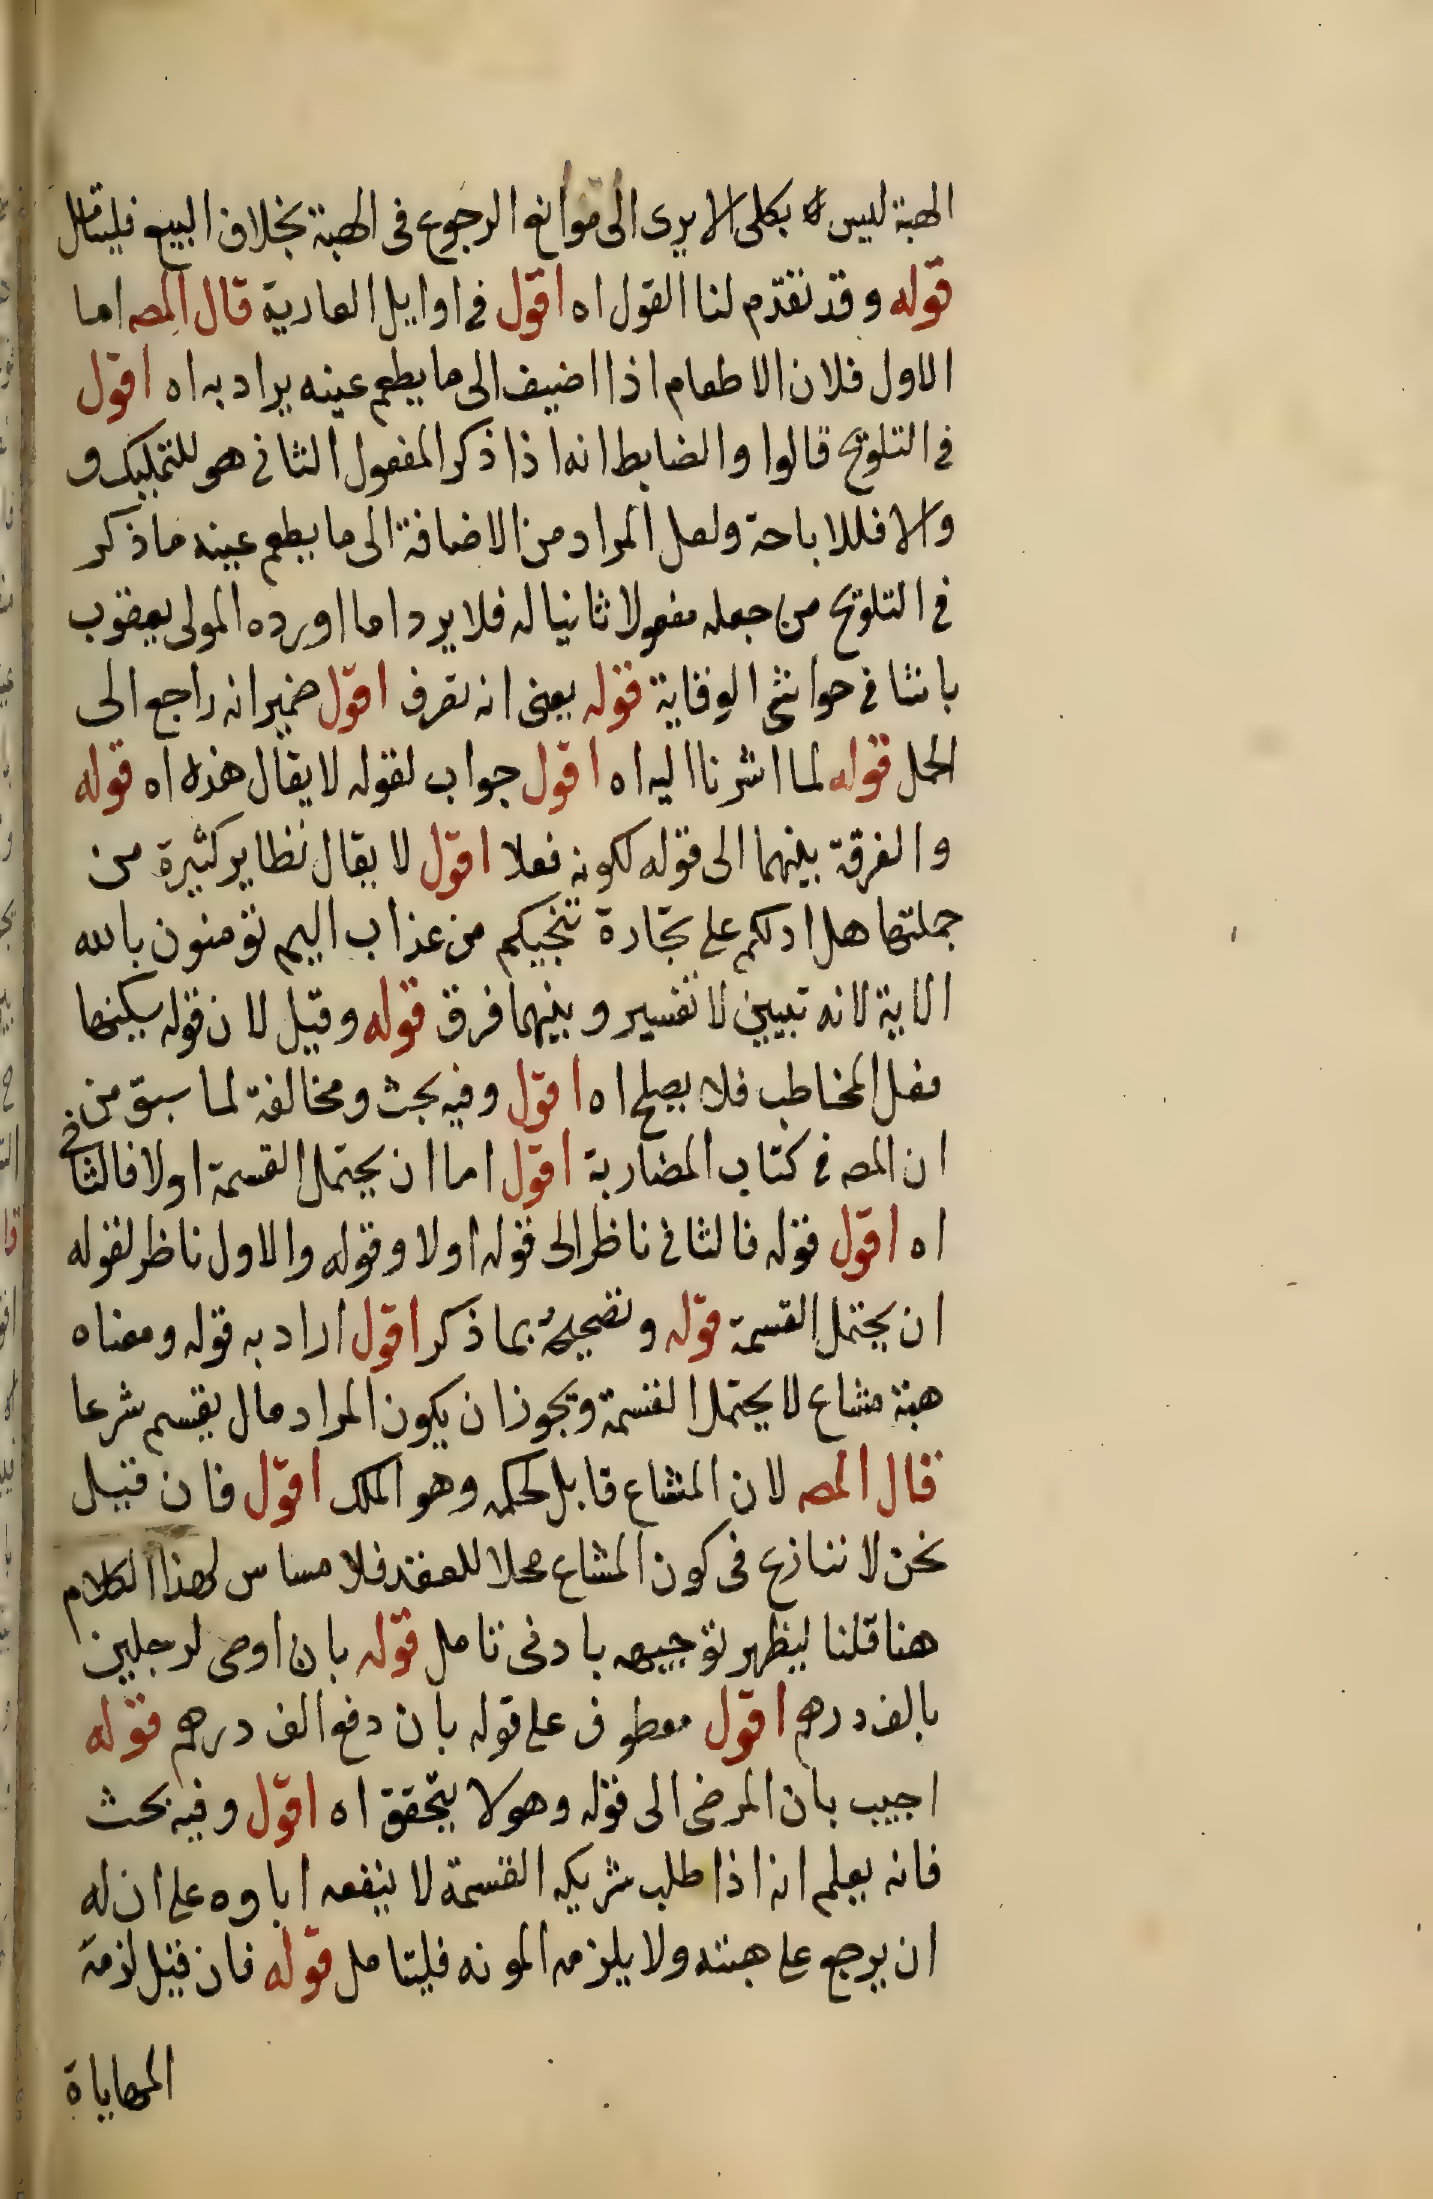 الهبة ليس بكلى الا يرى الى موانع الرجوع فى الهبة بخلاف البيع فليتامل
قوله وقد تقدم لنا القول اه اقول فى اوايل العارية قال المصه اما
الاول فلان الاطعام اذا اضيف الى ما يطعم عينه يراد به اه اقول
فى التلويح قالوا والضابط انه اذا ذكر المفعول الثانى هو للتمليك و
والا فللاباحة ولعل المراد من الاضافة الى ما يطعم عينه ما ذكر
فى التلويح من جعله مفعولا ثانيا له فلا يرد اما اورده المولى يعقوب
باشا فى حواشى الوقاية قوله يعنى انه تصرف اقول ضمير انه راجع الى
الحمل قوله لما اشرنا اليه اه اقول جواب لقوله لا يقال هذه اه قوله
والفرقة بينهما الى قوله لكونه فعلا اقول لا يقال نظاير كثيرة من
جملتها هل ادلكم على تجارة تنجيكم من عذاب اليم تؤمنون بالله
الاية لانه تبيين لا تفسير وبينهما فرق قوله وقيل لان قوله يسكنها
فعل المخاطب فلا يصلح اه اقول وفيه بحث ومخالفة لما سبق من
ان المصه فى كتاب المضاربة اقول اما ان يحتمل القسمة اولا فالثانى
اه اقول قوله فالثانى ناظر الى قوله اولا وقوله والاول ناظر لقوله
ان يحتمل القسمة قوله وتصحيحه بما ذكر اقول اراد به قوله ومعناه
هبة مشاع لا يحتمل القسمة ويجوز ان يكون المراد مال يقسم شرعا
قال المصه لان المشاع قابل لحكمه وهو الملك اقول فان قيل
نحن لا ننازع فى كون المشاع محلا للعقد فلا مساس لهذا الكلام
هنا قلنا ليظهر توجيهه بادنى تامل قوله بان اوصى لرجلين
بالف درهم اقول معطوف على قوله بان دفع الف درهم قوله
اجيب بان المرضى الى قوله وهو لا يتحقق اه اقول وفيه بحث
فانه يعلم انه اذا طلب شريكه القسمة لا ينفعه اباوه على ان له
ان يرجع على هبته ولا يلزمه المونه فليتامل قوله فان قيل لزمه
المهاياة